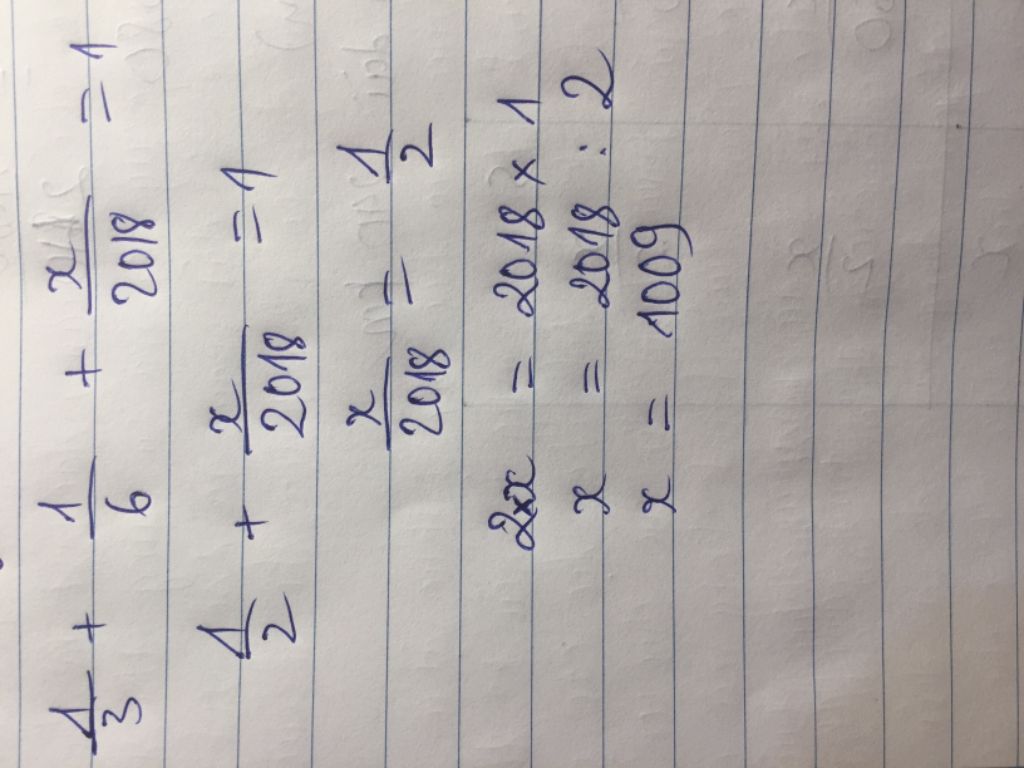 1/3 + 1/6 + x/2018 = 1
1/2 + x/2018 = 1
x/2018 = 1/2
2×x = 2018 × 1
x = 2018 : 2
x = 1009